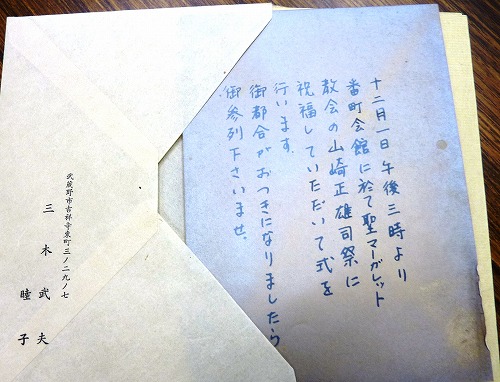 十二月一日午後三時より
番町会館に於て聖マーガレット
教会の山崎正雄司祭に
祝福していただいて式を
行います.
御都合がおつきになりましたら
御参列下さいませ.
武蔵野市吉祥寺東町三ノ二九ノ七
三木武夫
睦子